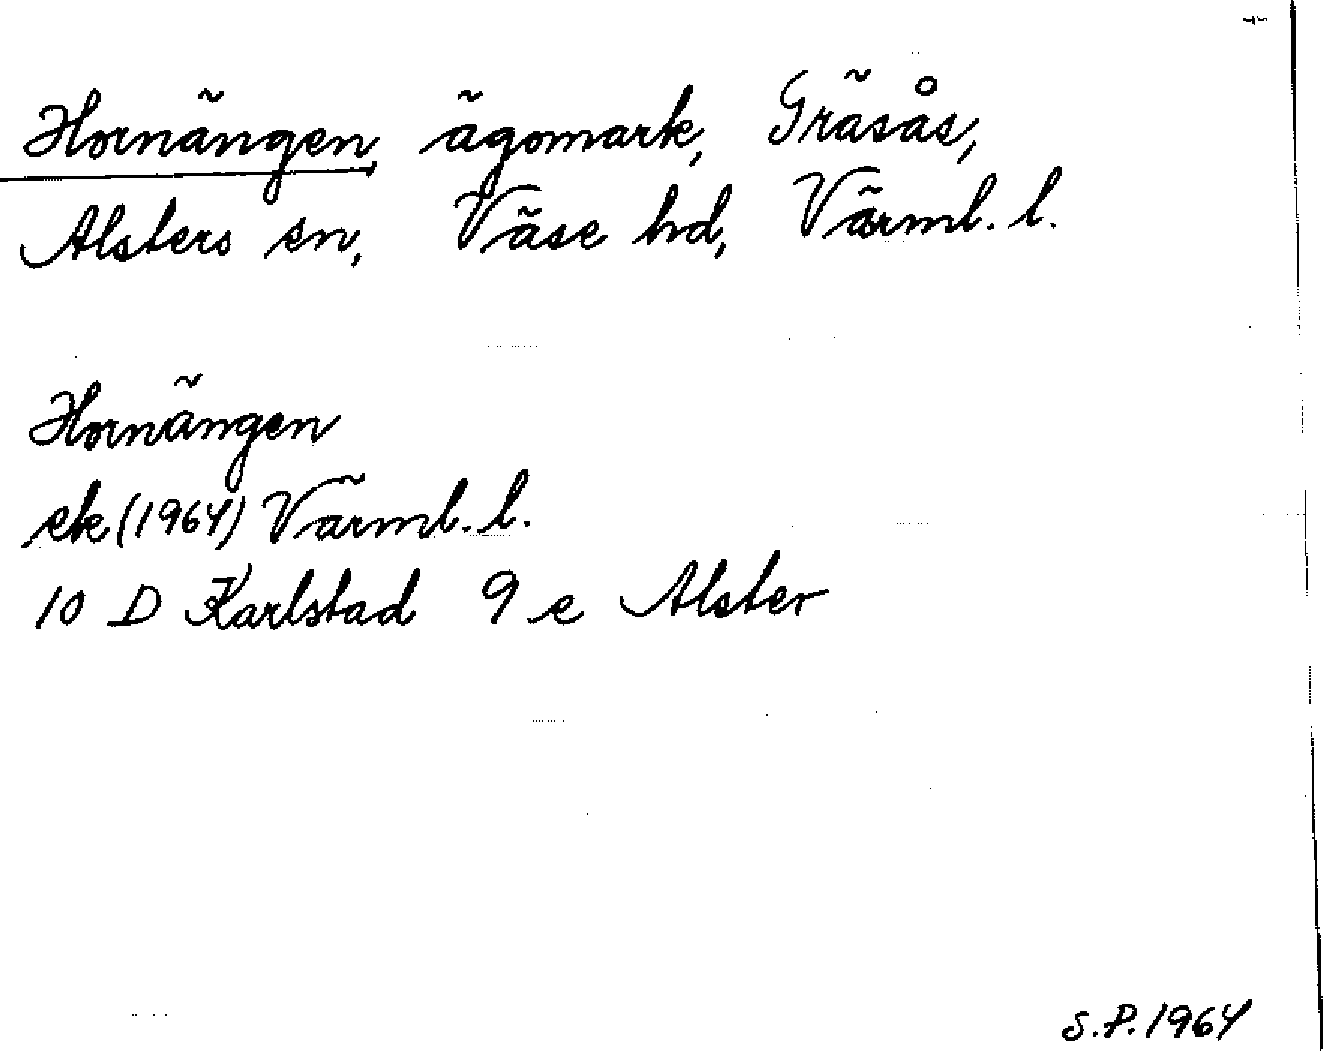 Hornängen, ägomark, Gräsås,
Alsters sn, Väse hd, Värml. l.
Hornängen
ek (1964) Värml. l.
10 D Karlstad 9 e Alster
S.P. 1964